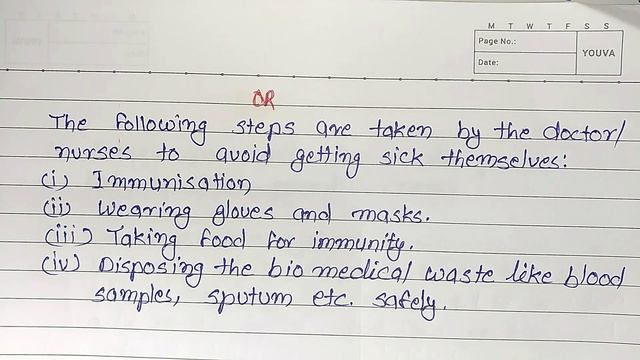 M T W T F S S
Page No.:
YOUVA
Date:
OR
The following steps are taken by the doctor/
nurses to avoid getting sick themselves:
(i) Immunisation
(ii) Wearing gloves and masks.
(iii) Taking food for immunity.
(iv) Disposing the bio medical waste like blood
samples, sputum etc. safely.